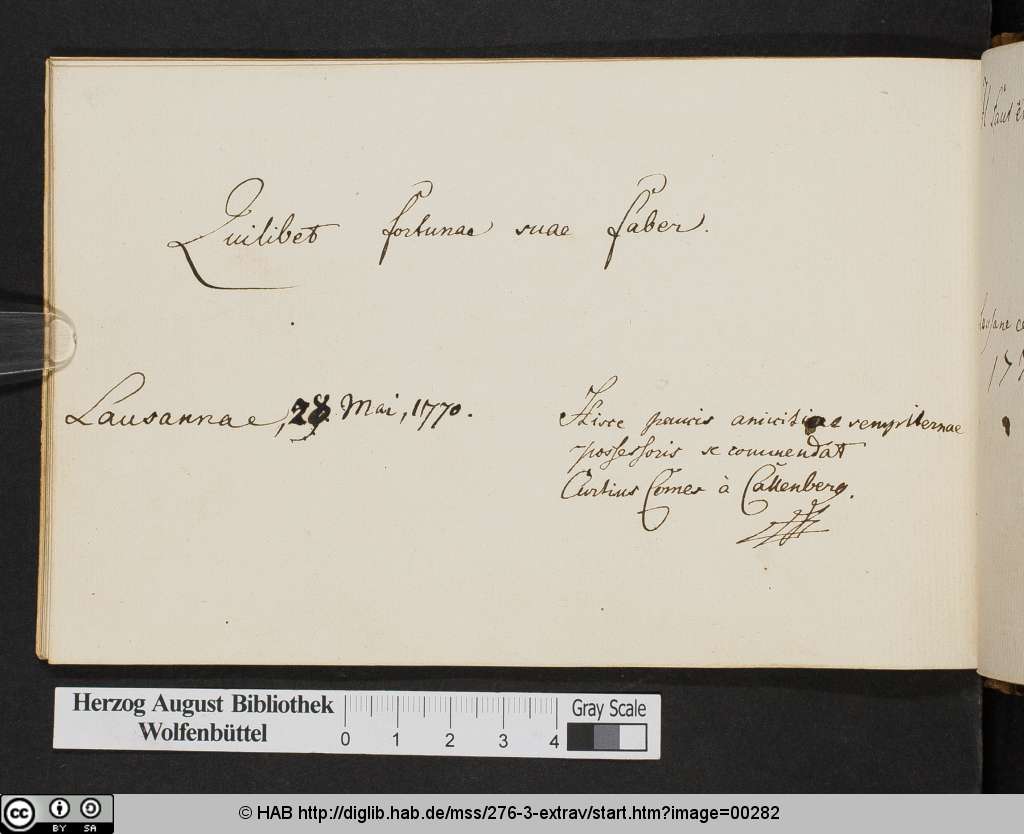 Quilibet fortunae suae faber.
Lausannae, 28 Mai, 1770.
Hisce paucis amicitiae sempiternae
possessoris se commendat
Curtius Comes à Callenberg.
Herzog August Bibliothek
Wolfenbüttel
0 1 2 3 4
Gray Scale
cc BY SA
© HAB http://diglib.hab.de/mss/276-3-extrav/start.htm?image=00282